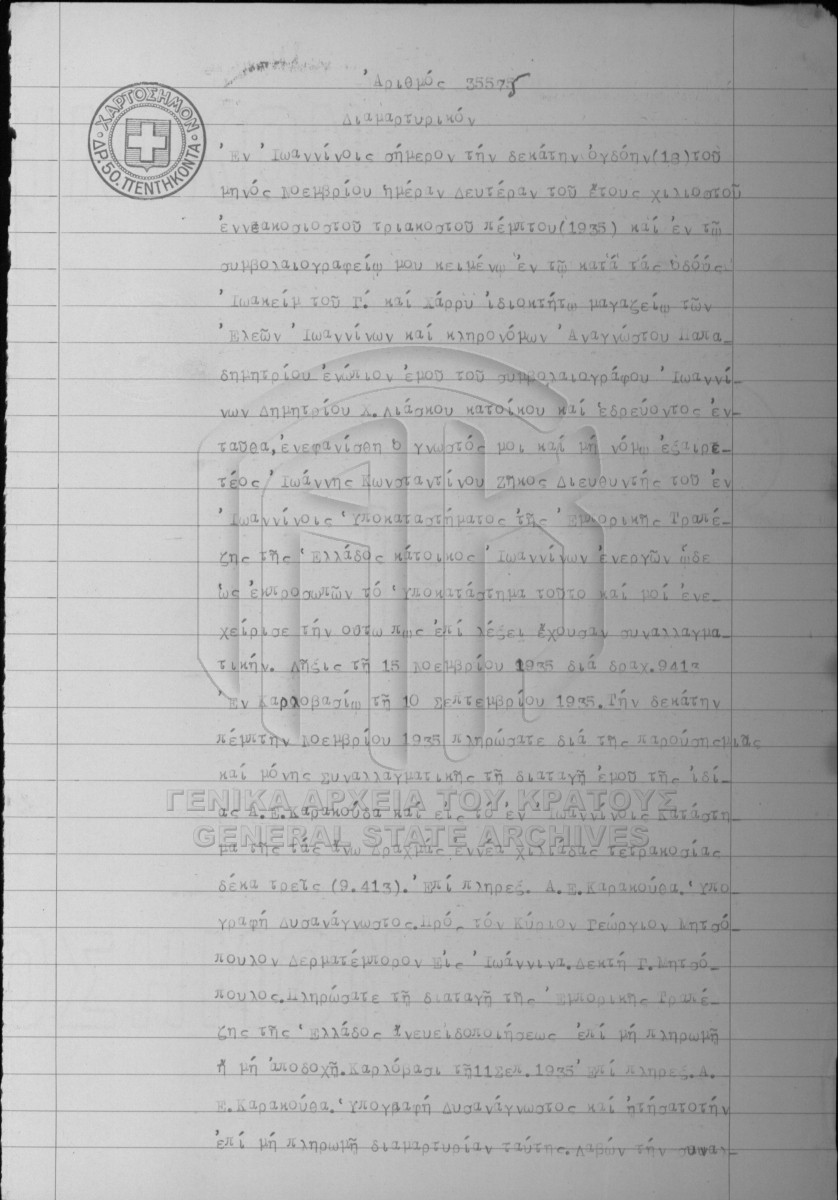 Ἀριθμός 35575
Διαμαρτυρικόν
ΧΑΡΤΟΣΗΜΟΝ
ΔΡ. 50. ΠΕΝΤΗΚΟΝΤΑ
Ἐν Ἰωαννίνοις σήμερον τήν δεκάτην ὀγδόην(18)τοῦ
μηνός Νοεμβρίου ἡμέραν Δευτέραν τοῦ ἔτους χιλιοστοῦ
ἐννεακοσιοστοῦ τριακοστοῦ πέμπτου(1935) καί ἐν τῷ
συμβολαιογραφείῳ μου κειμένῳ ἐν τῷ κατά τάς ὁδούς
Ἰωακείμ τοῦ Γ. καί Χάρρυ ἰδιοκτήτῳ μαγαζείῳ τῶν
Ἐλεῶν Ἰωαννίνων καί κληρονόμων Ἀναγνώστου Παπα-
δημητρίου ἐνώπιον ἐμοῦ τοῦ συμβολαιογράφου Ἰωαννί-
νων Δημητρίου Χ. Λιάσκου κατοίκου καί ἑδρεύοντος ἐν-
ταῦθα, ἐνεφανίσθη ὁ γνωστός μοι καί μή νόμῳ ἐξαιρε-
τέος Ἰωάννης Κωνσταντίνου Ζῆκος Διευθυντής τοῦ ἐν
Ἰωαννίνοις Ὑποκαταστήματος τῆς Ἐμπορικῆς Τραπέ-
ζης τῆς Ἑλλάδος κάτοικος Ἰωαννίνων ἐνεργῶν ᾧδε
ὡς ἐκπροσωπῶν τό Ὑποκατάστημα τοῦτο καί μοί ἐνε-
χείρισε τήν οὕτω πως ἐπί λέξει ἔχουσαν συναλλαγμα-
τικήν. Λῆξις τῇ 15 Νοεμβρίου 1935 διά δραχ.9413
Ἐν Καρλοβασίῳ τῇ 10 Σεπτεμβρίου 1935. Τήν δεκάτην
πέμπτην Νοεμβρίου 1935 πληρώσατε διά τῆς παρούσης μιᾶς
καί μόνης συναλλαγματικῆς τῇ διαταγῇ ἐμοῦ τῆς ἰδί-
ας Α.Ε.Καρακούθα καί εἰς τό ἐν Ἰωαννίνοις Κατάστη-
μα της τάς ἄνω Δραχμάς ἐννέα χιλιάδας τετρακοσίας
δέκα τρεῖς (9.413). Ἐπί πληρεξ. Α.Ε.Καρακούθα. Ὑπο-
γραφή Δυσανάγνωστος. Πρός τόν Κύριον Γεώργιον Μητσό-
πουλον Δερματέμπορον Εἰς Ἰωάννινα. Δεκτή Γ. Μητσό-
πουλος. Πληρώσατε τῇ διαταγῇ τῆς Ἐμπορικῆς Τραπέ-
ζης τῆς Ἑλλάδος ἄνευ εἰδοποιήσεως ἐπί μή πληρωμῇ
ἤ μή ἀποδοχῇ. Καρλόβασι τῇ 11 Σεπ. 1935 Ἐπί πληρεξ. Α.
Ε.Καρακούθα. Ὑπογραφή Δυσανάγνωστος καί ᾐτήσατο τήν
ἐπί μή πληρωμῇ διαμαρτυρίαν ταύτης. Λαβών τήν συναλ-
ΓΕΝΙΚΑ ΑΡΧΕΙΑ ΤΟΥ ΚΡΑΤΟΥΣ
GENERAL STATE ARCHIVES